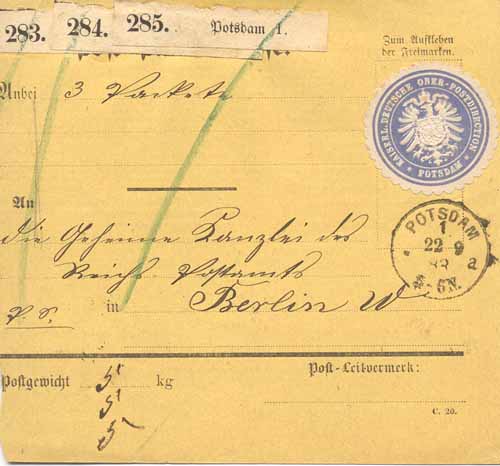 283. 284. 285. Potsdam 1.
Zum Aufkleben
der Freimarken.
Anbei 3 Packete
KAISERL. DEUTSCHE OBER-POSTDIRECTION
* POTSDAM *
An
die Geheime Kanzlei des
Reichs Postamts
in Berlin W
P. S.
POTSDAM
1
22 9
a
5-6N.
Postgewicht 5 kg
5
5
Post-Leitvermerk:
C. 20.